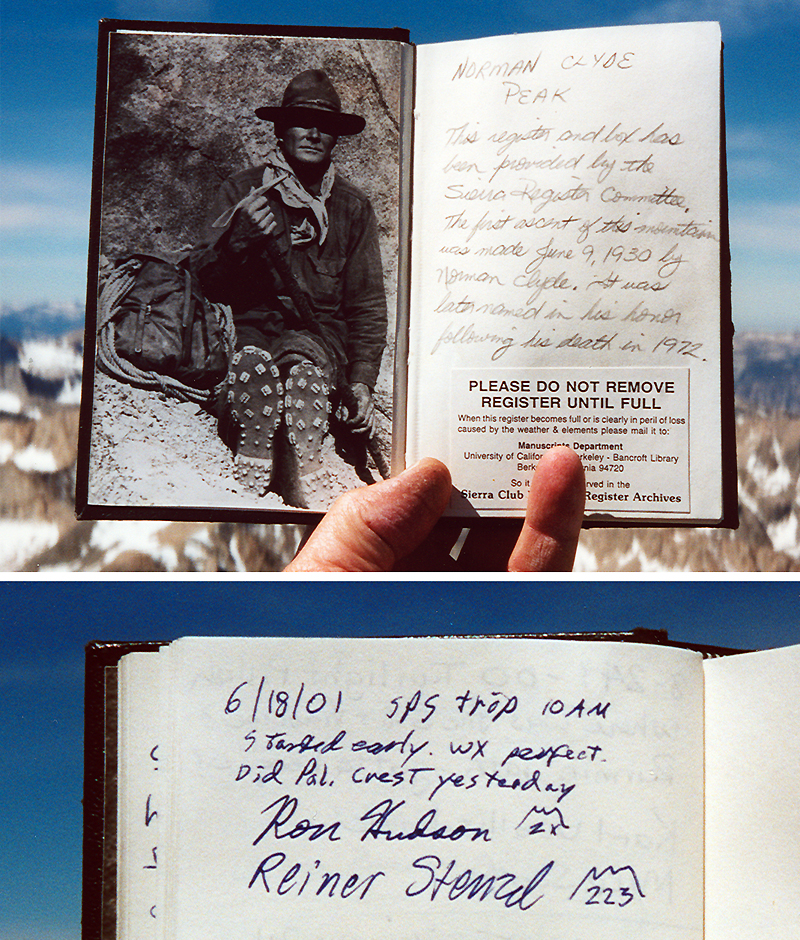 NORMAN CLYDE
PEAK
This register and box has
been provided by the
Sierra Register Committee.
The first ascent of this mountain
was made June 9, 1930 by
Norman Clyde. It was
later named in his honor
following his death in 1972.
PLEASE DO NOT REMOVE
REGISTER UNTIL FULL
When this register becomes full or is clearly in peril of loss
caused by the weather & elements please mail it to:
Manuscripts Department
University of Califor erkeley - Bancroft Library
Berk nia 94720
So it erved in the
Sierra Club Register Archives
6/18/01 SPS trip 10 AM
Started early. WX perfect.
Did Pal. Crest yesterday
Ron Hudson 2x
Reiner Stenzel 223